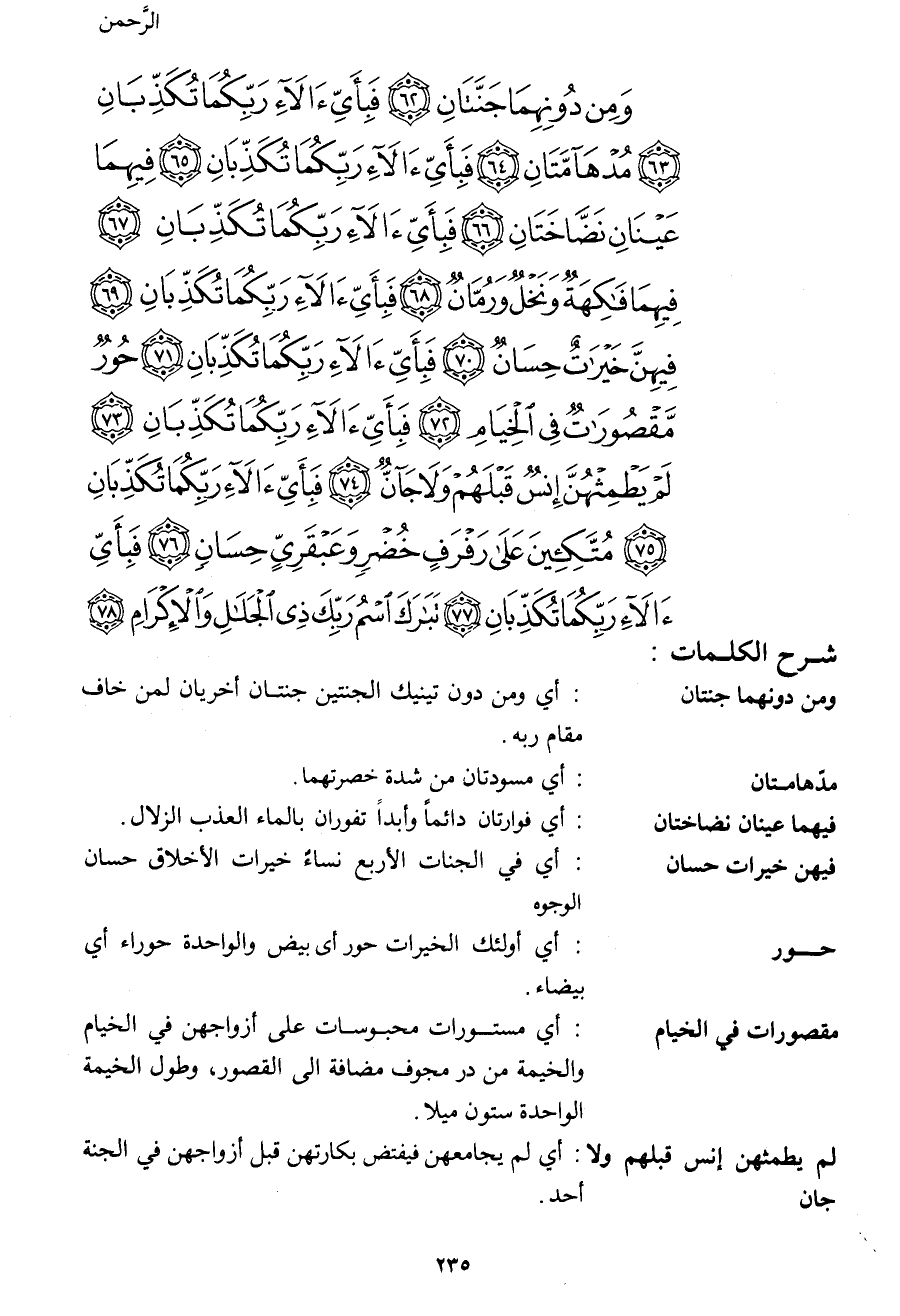 الرَّحمن
وَمِن دُونِهِمَا جَنَّتَانِ ﴿٦٢﴾ فَبِأَيِّ ءَالَآءِ رَبِّكُمَا تُكَذِّبَانِ
﴿٦٣﴾ مُدۡهَآمَّتَانِ ﴿٦٤﴾ فَبِأَيِّ ءَالَآءِ رَبِّكُمَا تُكَذِّبَانِ ﴿٦٥﴾ فِيهِمَا
عَيۡنَانِ نَضَّاخَتَانِ ﴿٦٦﴾ فَبِأَيِّ ءَالَآءِ رَبِّكُمَا تُكَذِّبَانِ ﴿٦٧﴾
فِيهِمَا فَٰكِهَةٌ وَنَخۡلٌ وَرُمَّانٌ ﴿٦٨﴾ فَبِأَيِّ ءَالَآءِ رَبِّكُمَا تُكَذِّبَانِ ﴿٦٩﴾
فِيهِنَّ خَيۡرَٰتٌ حِسَانٌ ﴿٧٠﴾ فَبِأَيِّ ءَالَآءِ رَبِّكُمَا تُكَذِّبَانِ ﴿٧١﴾ حُورٌ
مَّقۡصُورَٰتٌ فِى ٱلۡخِيَامِ ﴿٧٢﴾ فَبِأَيِّ ءَالَآءِ رَبِّكُمَا تُكَذِّبَانِ ﴿٧٣﴾
لَمۡ يَطۡمِثۡهُنَّ إِنسٌ قَبۡلَهُمۡ وَلَا جَآنٌّ ﴿٧٤﴾ فَبِأَيِّ ءَالَآءِ رَبِّكُمَا تُكَذِّبَانِ
﴿٧٥﴾ مُتَّكِـِٔينَ عَلَىٰ رَفۡرَفٍ خُضۡرٍ وَعَبۡقَرِيٍّ حِسَانٍ ﴿٧٦﴾ فَبِأَيِّ
ءَالَآءِ رَبِّكُمَا تُكَذِّبَانِ ﴿٧٧﴾ تَبَٰرَكَ ٱسۡمُ رَبِّكَ ذِى ٱلۡجَلَٰلِ وَٱلۡإِكۡرَامِ ﴿٧٨﴾
شرح الكلمات :
ومن دونهما جنتان : أي ومن دون تينيك الجنتين جنتان أخريان لمن خاف
مقام ربه .
مدّهامتان : أي مسودتان من شدة خصرتهما .
فيهما عينان نضاختان : أي فوارتان دائماً وأبداً تفوران بالماء العذب الزلال .
فيهن خيرات حسان : أي في الجنات الأربع نساءٌ خيرات الأخلاق حسان
الوجوه
حور : أي أولئك الخيرات حور أى بيض والواحدة حوراء أي
بيضاء .
مقصورات في الخيام : أي مستورات محبوسات على أزواجهن في الخيام
والخيمة من در مجوف مضافة الى القصور، وطول الخيمة
الواحدة ستون ميلا .
لم يطمثهن إنس قبلهم ولا : أي لم يجامعهن فيفتض بكارتهن قبل أزواجهن في الجنة
جان أحد .
٢٣٥